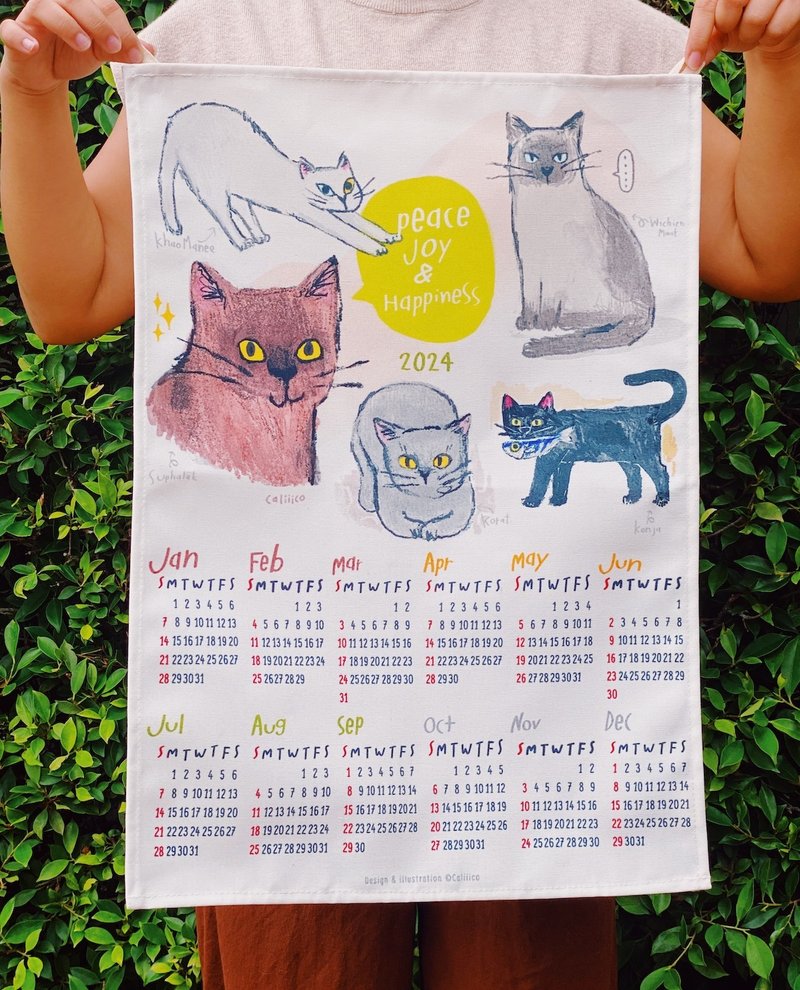 KhaoManee
peace
Joy
&
Happiness
....
Wichien
Maat
2024
Suphalak
Calilico
Korat
Konja
Jan
S M T W T F S
1 2 3 4 5 6
7 8 9 10 11 12 13
14 15 16 17 18 19 20
21 22 23 24 25 26 27
28 29 30 31
Feb
S M T W T F S
1 2 3
4 5 6 7 8 9 10
11 12 13 14 15 16 17
18 19 20 21 22 23 24
25 26 27 28 29
Mar
S M T W T F S
1 2
3 4 5 6 7 8 9
10 11 12 13 14 15 16
17 18 19 20 21 22 23
24 25 26 27 28 29 30
31
Apr
S M T W T F S
1 2 3 4 5 6
7 8 9 10 11 12 13
14 15 16 17 18 19 20
21 22 23 24 25 26 27
28 29 30
May
S M T W T F S
1 2 3 4
5 6 7 8 9 10 11
12 13 14 15 16 17 18
19 20 21 22 23 24 25
26 27 28 29 30 31
Jun
S M T W T F S
1
2 3 4 5 6 7 8
9 10 11 12 13 14 15
16 17 18 19 20 21 22
23 24 25 26 27 28 29
30
Jul
S M T W T F S
1 2 3 4 5 6
7 8 9 10 11 12 13
14 15 16 17 18 19 20
21 22 23 24 25 26 27
28 29 30 31
Aug
S M T W T F S
1 2 3
4 5 6 7 8 9 10
11 12 13 14 15 16 17
18 19 20 21 22 23 24
25 26 27 28 29 30 31
Sep
S M T W T F S
1 2 3 4 5 6 7
8 9 10 11 12 13 14
15 16 17 18 19 20 21
22 23 24 25 26 27 28
29 30
Oct
S M T W T F S
1 2 3 4 5
6 7 8 9 10 11 12
13 14 15 16 17 18 19
20 21 22 23 24 25 26
27 28 29 30 31
Nov
S M T W T F S
1 2
3 4 5 6 7 8 9
10 11 12 13 14 15 16
17 18 19 20 21 22 23
24 25 26 27 28 29 30
Dec
S M T W T F S
1 2 3 4 5 6 7
8 9 10 11 12 13 14
15 16 17 18 19 20 21
22 23 24 25 26 27 28
29 30 31
Design & illustration ©Calilico